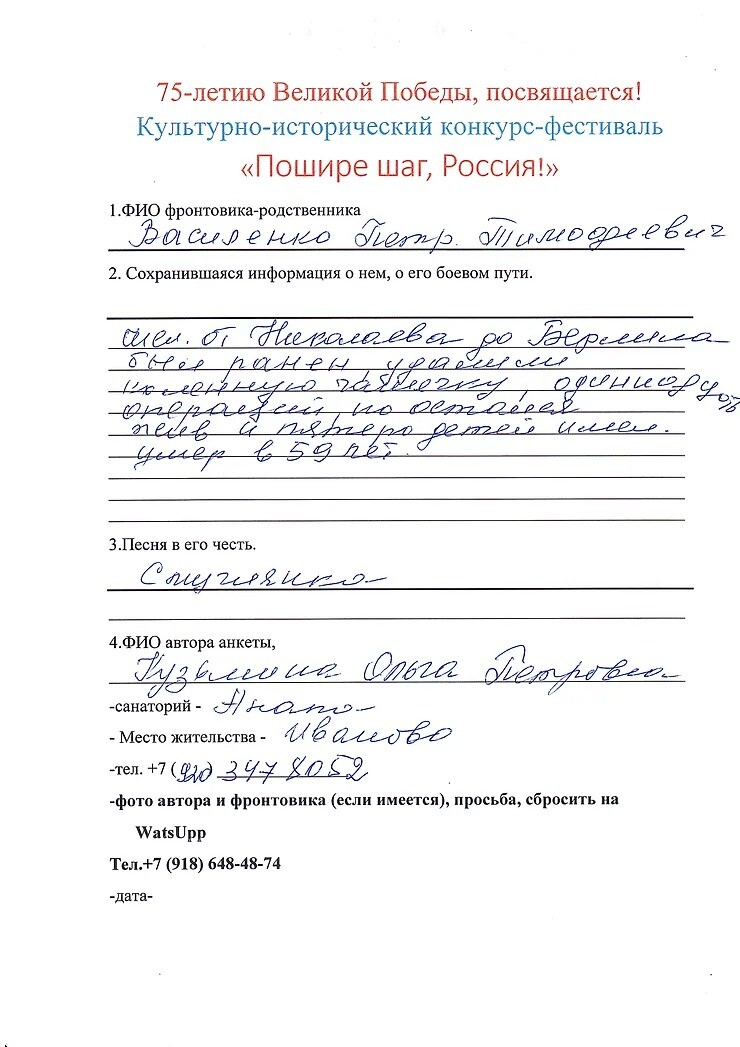 75-летию Великой Победы, посвящается!
Культурно-исторический конкурс-фестиваль
«Пошире шаг, Россия!»
1.ФИО фронтовика-родственника
Василенко Петр. Тимофеевич
2. Сохранившаяся информация о нем, о его боевом пути.
шел. от Николаева до Берлина
был ранен, удалили
коленную чашечку, одиннадцать
операций, но остался
жив и пятеро детей имел.
умер в 59 лет.
3.Песня в его честь.
Смуглянка
4.ФИО автора анкеты,
Кузьмина Ольга Петровна
-санаторий - Анапа
- Место жительства - Иваново
-тел. +7 (920) 347 8052
-фото автора и фронтовика (если имеется), просьба, сбросить на
WatsUpp
Тел.+7 (918) 648-48-74
-дата-